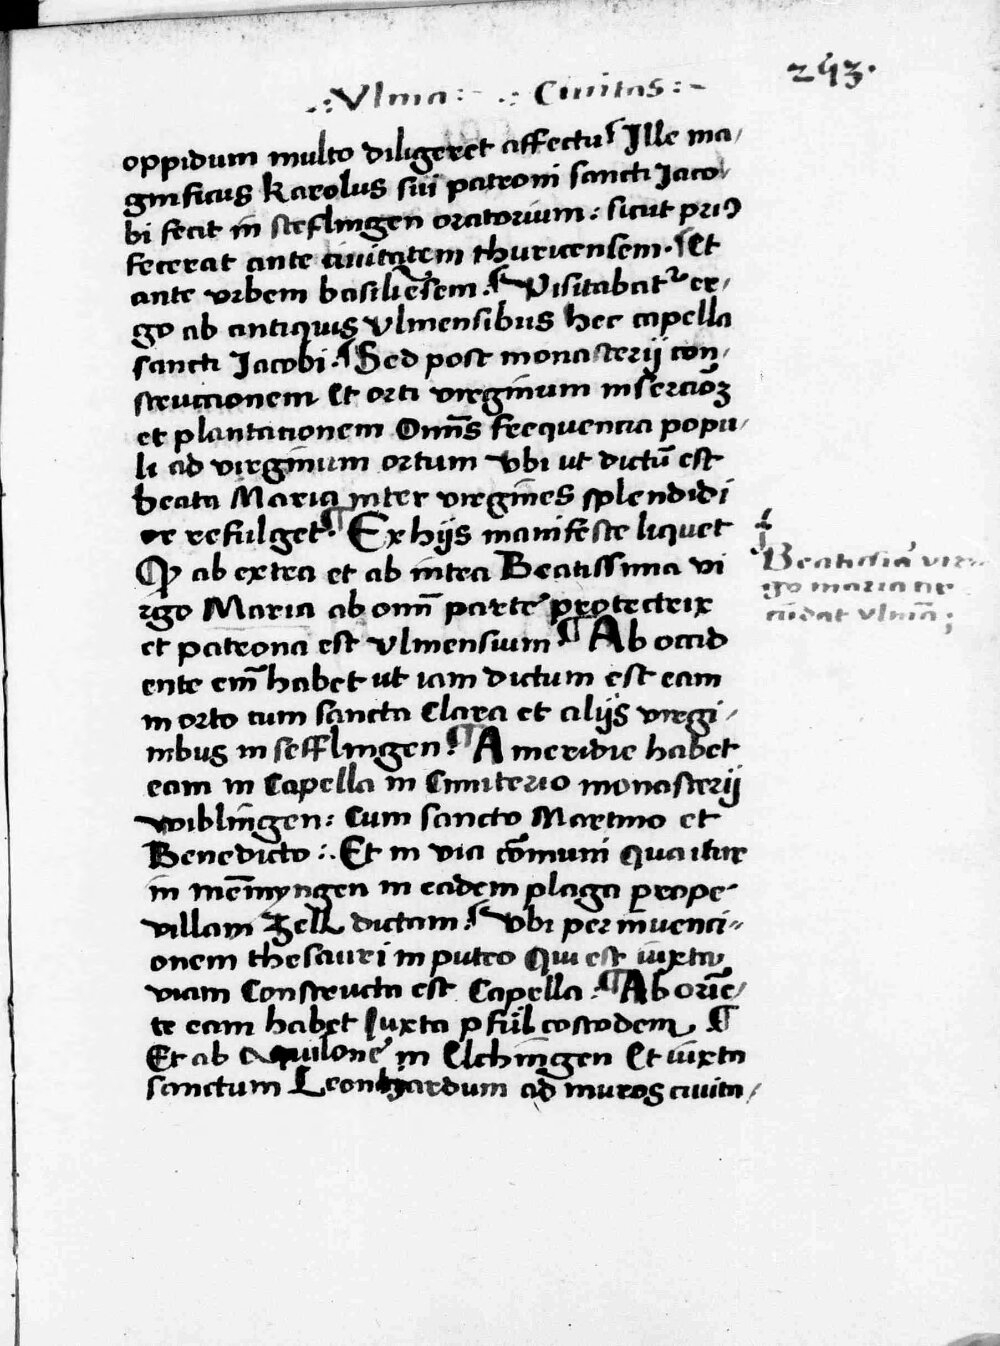 243.
.:Vlma:- .: Ciuitas:-
oppidum multo diligeret affectu ¶ Ille ma/
gnificus Karolus sui patroni sancti Jaco/
bi fecit in seflingen oratorium: sicut priꝰ
fecerat ante ciuitatem thuricensem. ¶ Et
ante vrbem basiliēsem. ¶ Visitabat᷑ er/
go ab antiquis Vlmensibus hec capella
sancti Jacobi. ¶ Sed post monasterij con/
struccionem Et orti virginum insercioꝫ
et plantacionem Omīs frequencia popu/
li ad virginum ortum vbi ut dictū est
beata Maria inter virgines splendidi
or refulget. ¶ Ex hijs manifeste liquet
Ꝙ ab extra et ab intra Beatissima vi
rgo Maria ab omī parte protectrix
et patrona est Vlmensium ¶ Ab occid
ente em̄ habet ut iam dictum est eam
in orto cum sancta Clara et alijs virgi/
nibus in sefflingen. ¶ A meridie habet
eam in Capella in Cimiterio monasterij
wiblingen: Cum sancto Martino et
Benedicto:. Et in via cōmuni qua itur
in mēmyngen in eadem plaga prope
villam Zell dictam. ¶ Vbi per inuenci-
onem thesauri in puteo Qui est iuxta
viam Constructa est Capella. ¶ Ab oriē/
te eam habet Juxta pfůl costodem ¶
Et ab aquilone in Elchingen Et iuxta
sanctum Leonhardum ad muros ciuita/
Beatissīa vir
go maria cir
cūdat vlmā;